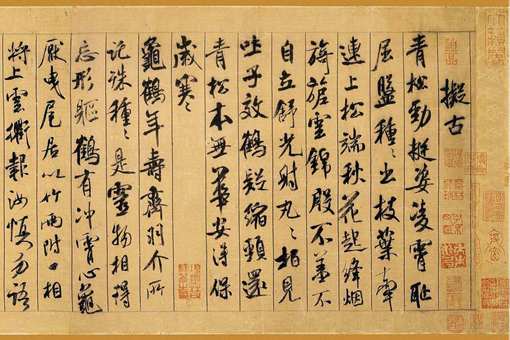 擬古
青松勁挺姿凌霄恥
屈盤種々出枝葉牽
連上松端秋花起絳烟
旖旎雲錦殷不羞不
自立舒光射丸々柏見
吐子效鶴疑縮頸還
青松本無華安得保
歲寒
龜鶴年壽齊羽介所
託殊種々是靈物相得
忘形軀鶴有冲霄心龜
厭曳尾居以竹兩附口相
將上雲衢報汝慎勿語